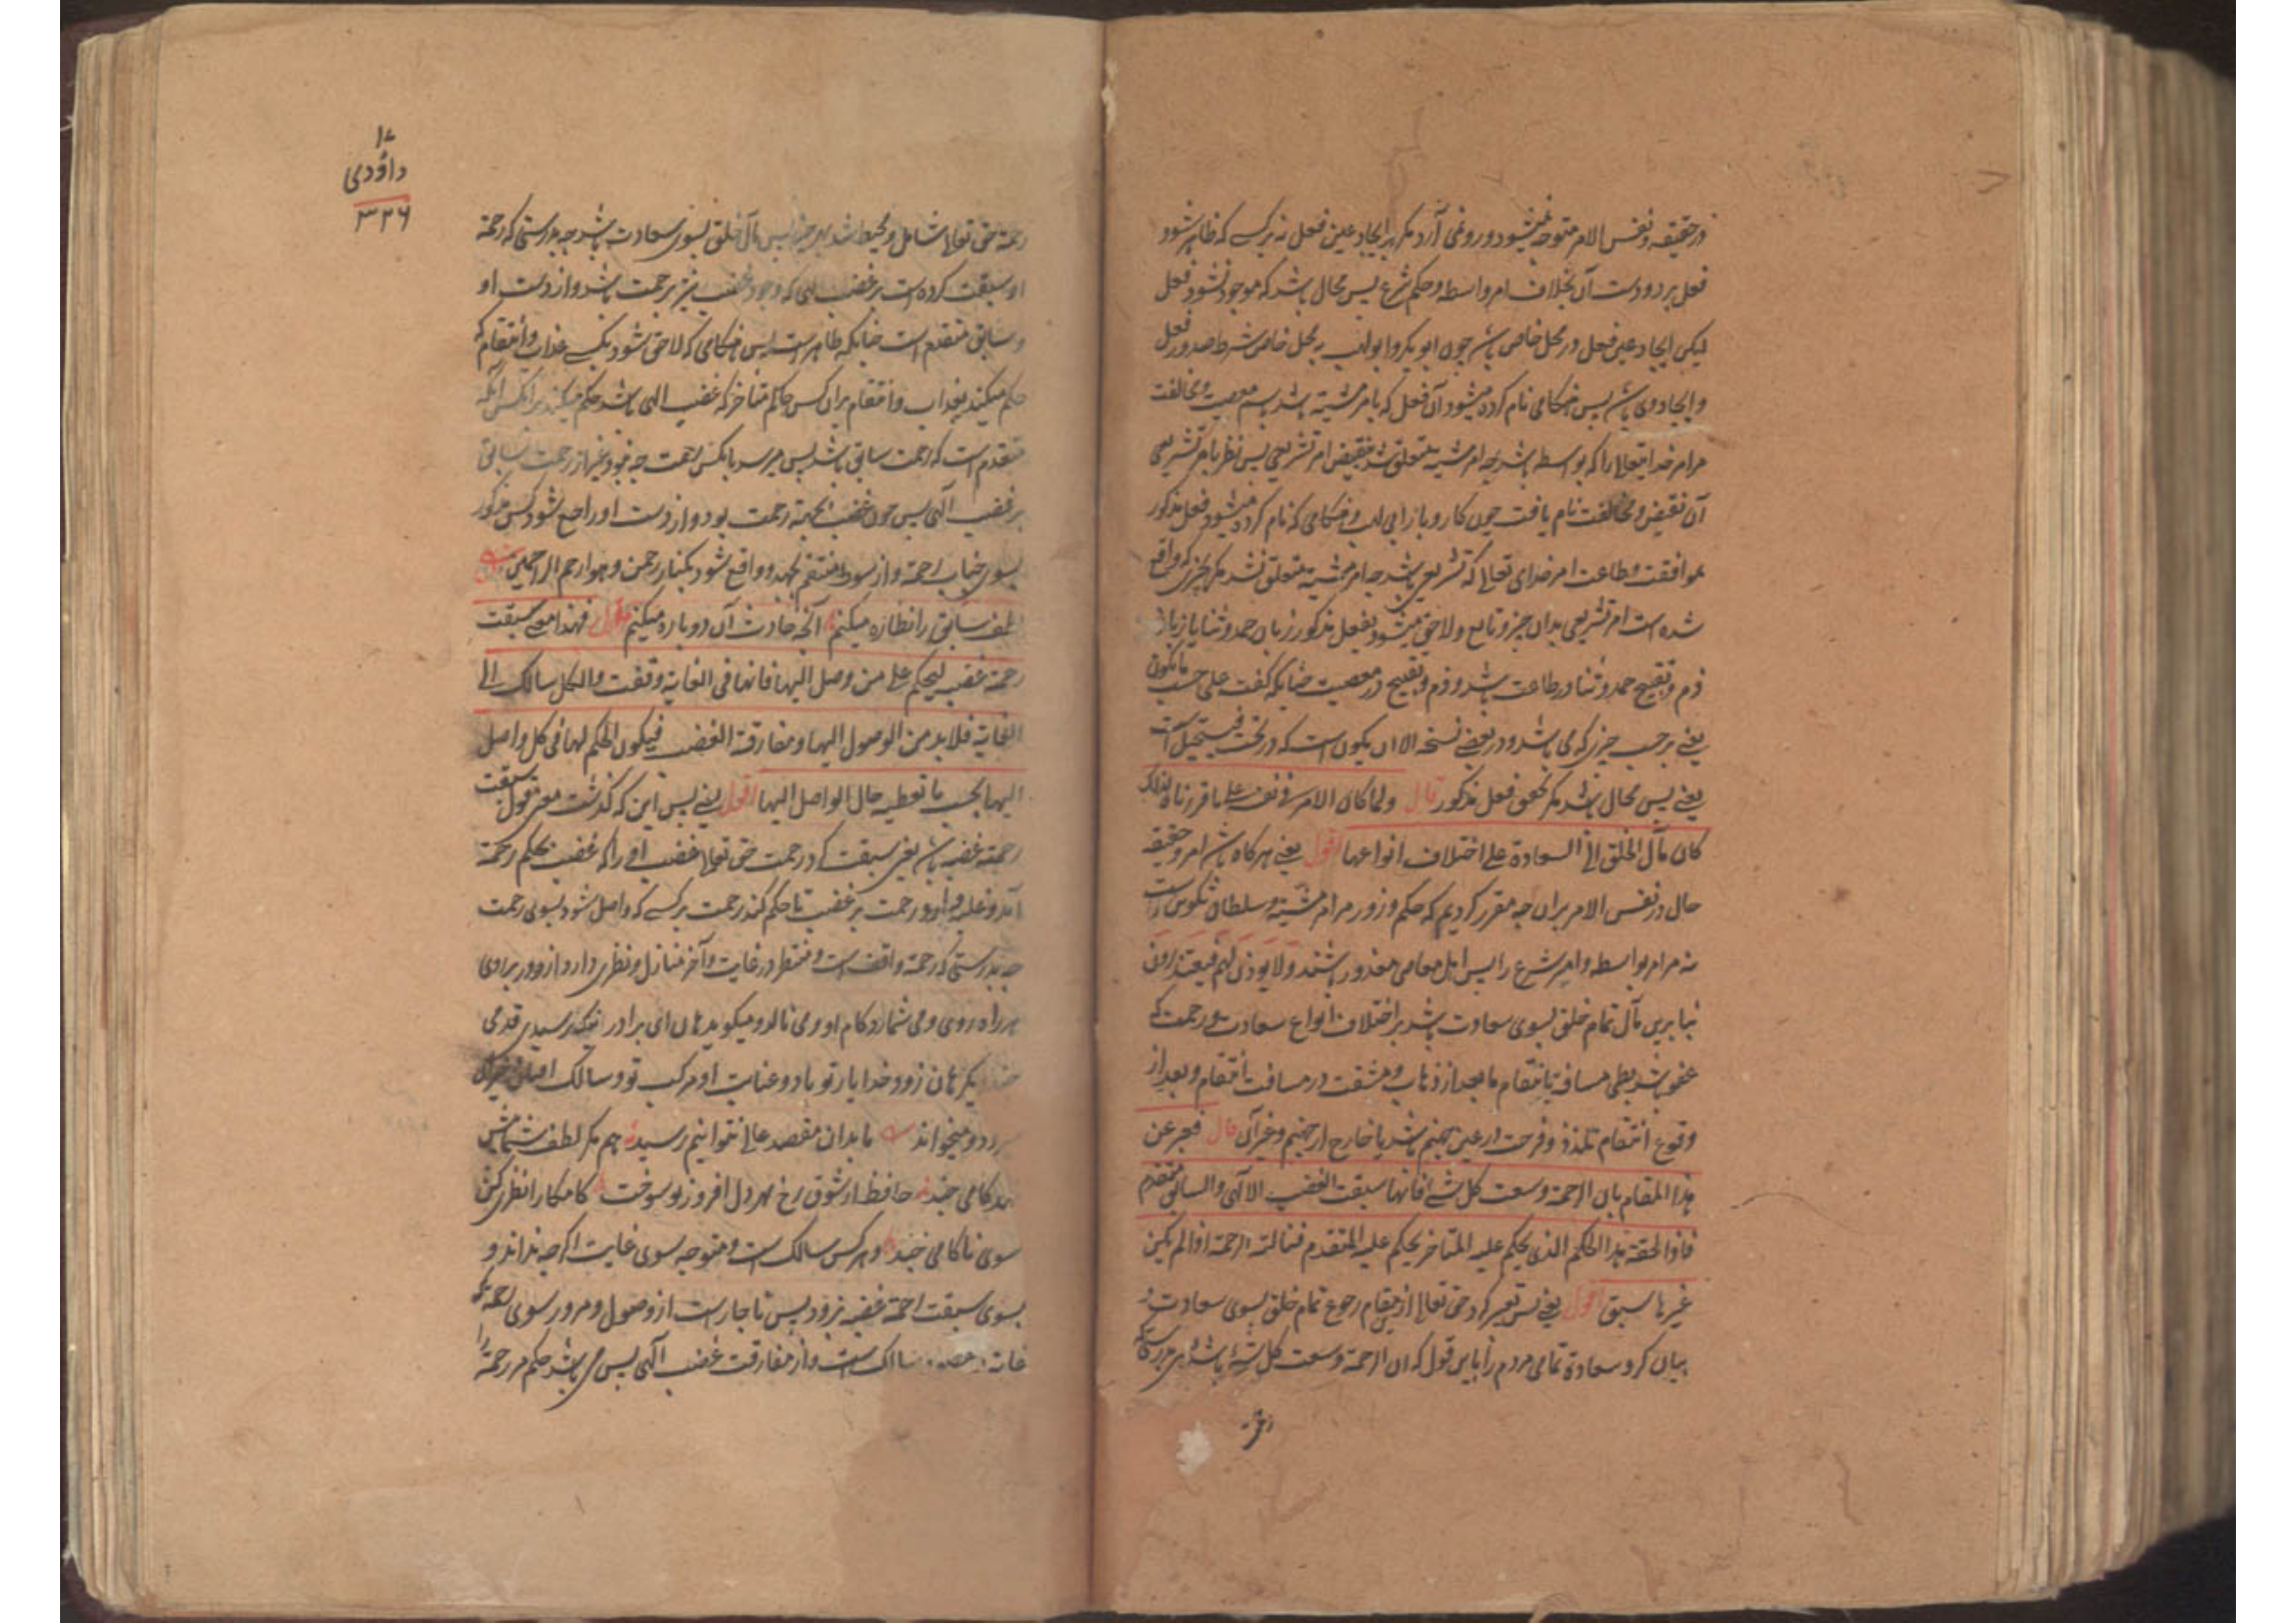 در حقیقه و نفس الامر متوجه نمیشود و رو نمی آرد مکر بر ایجاد عین فعل نه بر کسے که ظاهر شود
فعل بر دو دست آن بخلاف امر واسطه و حکم شرع پس محال باشد که موجود نشود فعل
لیکن ایجاد عین فعل در محل خاص باشد چون ابو بکر و ابو لهب چه محل خاص شرط صدور فعل
و ایجاد وی باشد پس هنکامی نام کرده میشود آن فعل که بامر مشیته باشد باسم معصیت و مخالفت
مرامر خدایتعالی را که بواسطه باشد چه امر مشیته متعلق شد بنقیض امر تشریعی پس نظر بامر تشریعی
آن نقیض و مخالفت نام یافت چون کار و بار ابی لهب و هنکامی که نام کرده میشود فعل مذکور
بموافقت و طاعت امر خدای تعالی که تشریعی باشد چه امر مشیته متعلق نشد مکر بچیزی که واقع
شده است امر تشریعی بدان چیز و تابع و لاحق میشود بفعل مذکور زبان حمد و ثنا یا زبان
ذم و تقبیح حمد و ثنا در طاعت باشد و ذم و تقبیح در معصیت چنانکه کفت علی حسب ما یکون
یعنے بر حسب چیزی که می باشد و در بعضے نسخه الا ان یکون است که در تحت فیستحیل است
یعنے پس محال باشد مکر تحقق فعل مذکور قال ولما کان الامر فی نفسه علی ما قررناه لذلک
کان مآل الخلق الی السعادة علی اختلاف انواعها اقول یعنے هرکاه باشد امر و حقیقه
حال در نفس الامر بران چه مقرر کردیم که حکم و زور مرامر مشیته و سلطان تکوین راست
نه مرامر بواسطه و امر شرع را پس اهل معاصی معذور باشند ولا یوذن لهم فیعتذرون
بنا برین مآل تمام خلق بسوی سعادت باشد بر اختلاف انواع سعادت و رحمت که
عفو باشد بطی مسافة یا انتقام ما بعد از ذهاب و مشقت در مسافت انتقام و بعد از
وقوع انتقام تلذذ و فرحت در عین جهنم باشد یا خارج از جهنم و غیر آن قال فعبر عن
هذا المقام بان الرحمة وسعت کل شئ فانها سبقت الغضب الالهی والسابق متقدم
فاذا لحقه هذا الحکم الذی یحکم علیه المتاخر یحکم علیه المتقدم فنالته الرحمة اذا لم یکن
غیرها سبق اقول یعنے پس تعبیر کرد حق تعالی ازین مقام رجوع تمام خلق بسوی سعادت و
بیان کرد سعادة تمامی مردم را باین قول که ان الرحمة وسعت کل شئ باشد هر
رحمة
۱۸
داؤدی
۳۲۶
رحمة حق تعالی شامل و محیط باشد هر چیز پس مآل خلق بسوی سعادت باشد چه بدرستی که رحمة
او سبقت کرده است بر غضب الهی که وجود غضب نیز برحمت باشد و از دست او
و سابق متقدم است چنانکه ظاهر است پس هنکامی که لاحق شود بکسے عذاب و انتقام که
حکم میکند بعذاب و انتقام بران کس حاکم متاخر که غضب الهی باشد حکم میکند بر انکس آنکه
متقدم است که رحمت سابق باشد پس میرسد بانکس رحمت چه نبود غیر از رحمت سابق
بر غضب الهی پس چون غضب بحکمة رحمت بود و از دست او راجع شود کس مذکور
بسوی جناب رحمة و از سوط منتقم بجهد و واقع شود بکنار رحمن و هو ارحم الراحمین
لطف سابق را نظاره میکنم آنچه حادث آن دو باره میکنم قال فهذا معنی سبقت
رحمته غضبه لیحکم علی من وصل الیها فانها فی الغایة وقفت والکل سالک الی
الغایة فلابد من الوصول الیها و مفارقة الغضب فیکون الحکم لها فی کل واصل
الیها بحسب ما تعطیه حال الواصل الیها اقول یعنے پس این که کذشت معنی قول سبقت
رحمته غضبه باشد یعنی سبقت کرد رحمت حق تعالی غضب او را که غضب بحکم رحمة
آمد و غلبه آورد رحمت بر غضب تا حکم کند رحمت بر کسے که واصل شود بسوی رحمت
چه بدرستی که رحمة واقف است و منتظر در غایت و آخر منازل و نظری دارد از دور برای
هر راه روی و می شمارد کام او و می نالد و میکوید هان ای برادر نزدیک رسیدی قدمی
چند دیکر هان زود خدا یار تو باد و عنایت او مرکب تو و سالک
میرود و میخواند ما بدان مقصد عالی نتوانیم رسید هم مکر لطف شما پیش
نهد کامی چند حافظ از شوق رخ مهر دل افروز تو سوخت کامکارا نظری کن
سوی ناکامی چند و هر کس سالک است و متوجه سوی غایت اکرچه نداند و
بسوی سبقت رحمة غضبه نرود پس ناچار است از وصول و مرور سوی رحمة که
غایت سالک است و از مفارقت غضب الهی پس می باشد حکم مر رحمة را